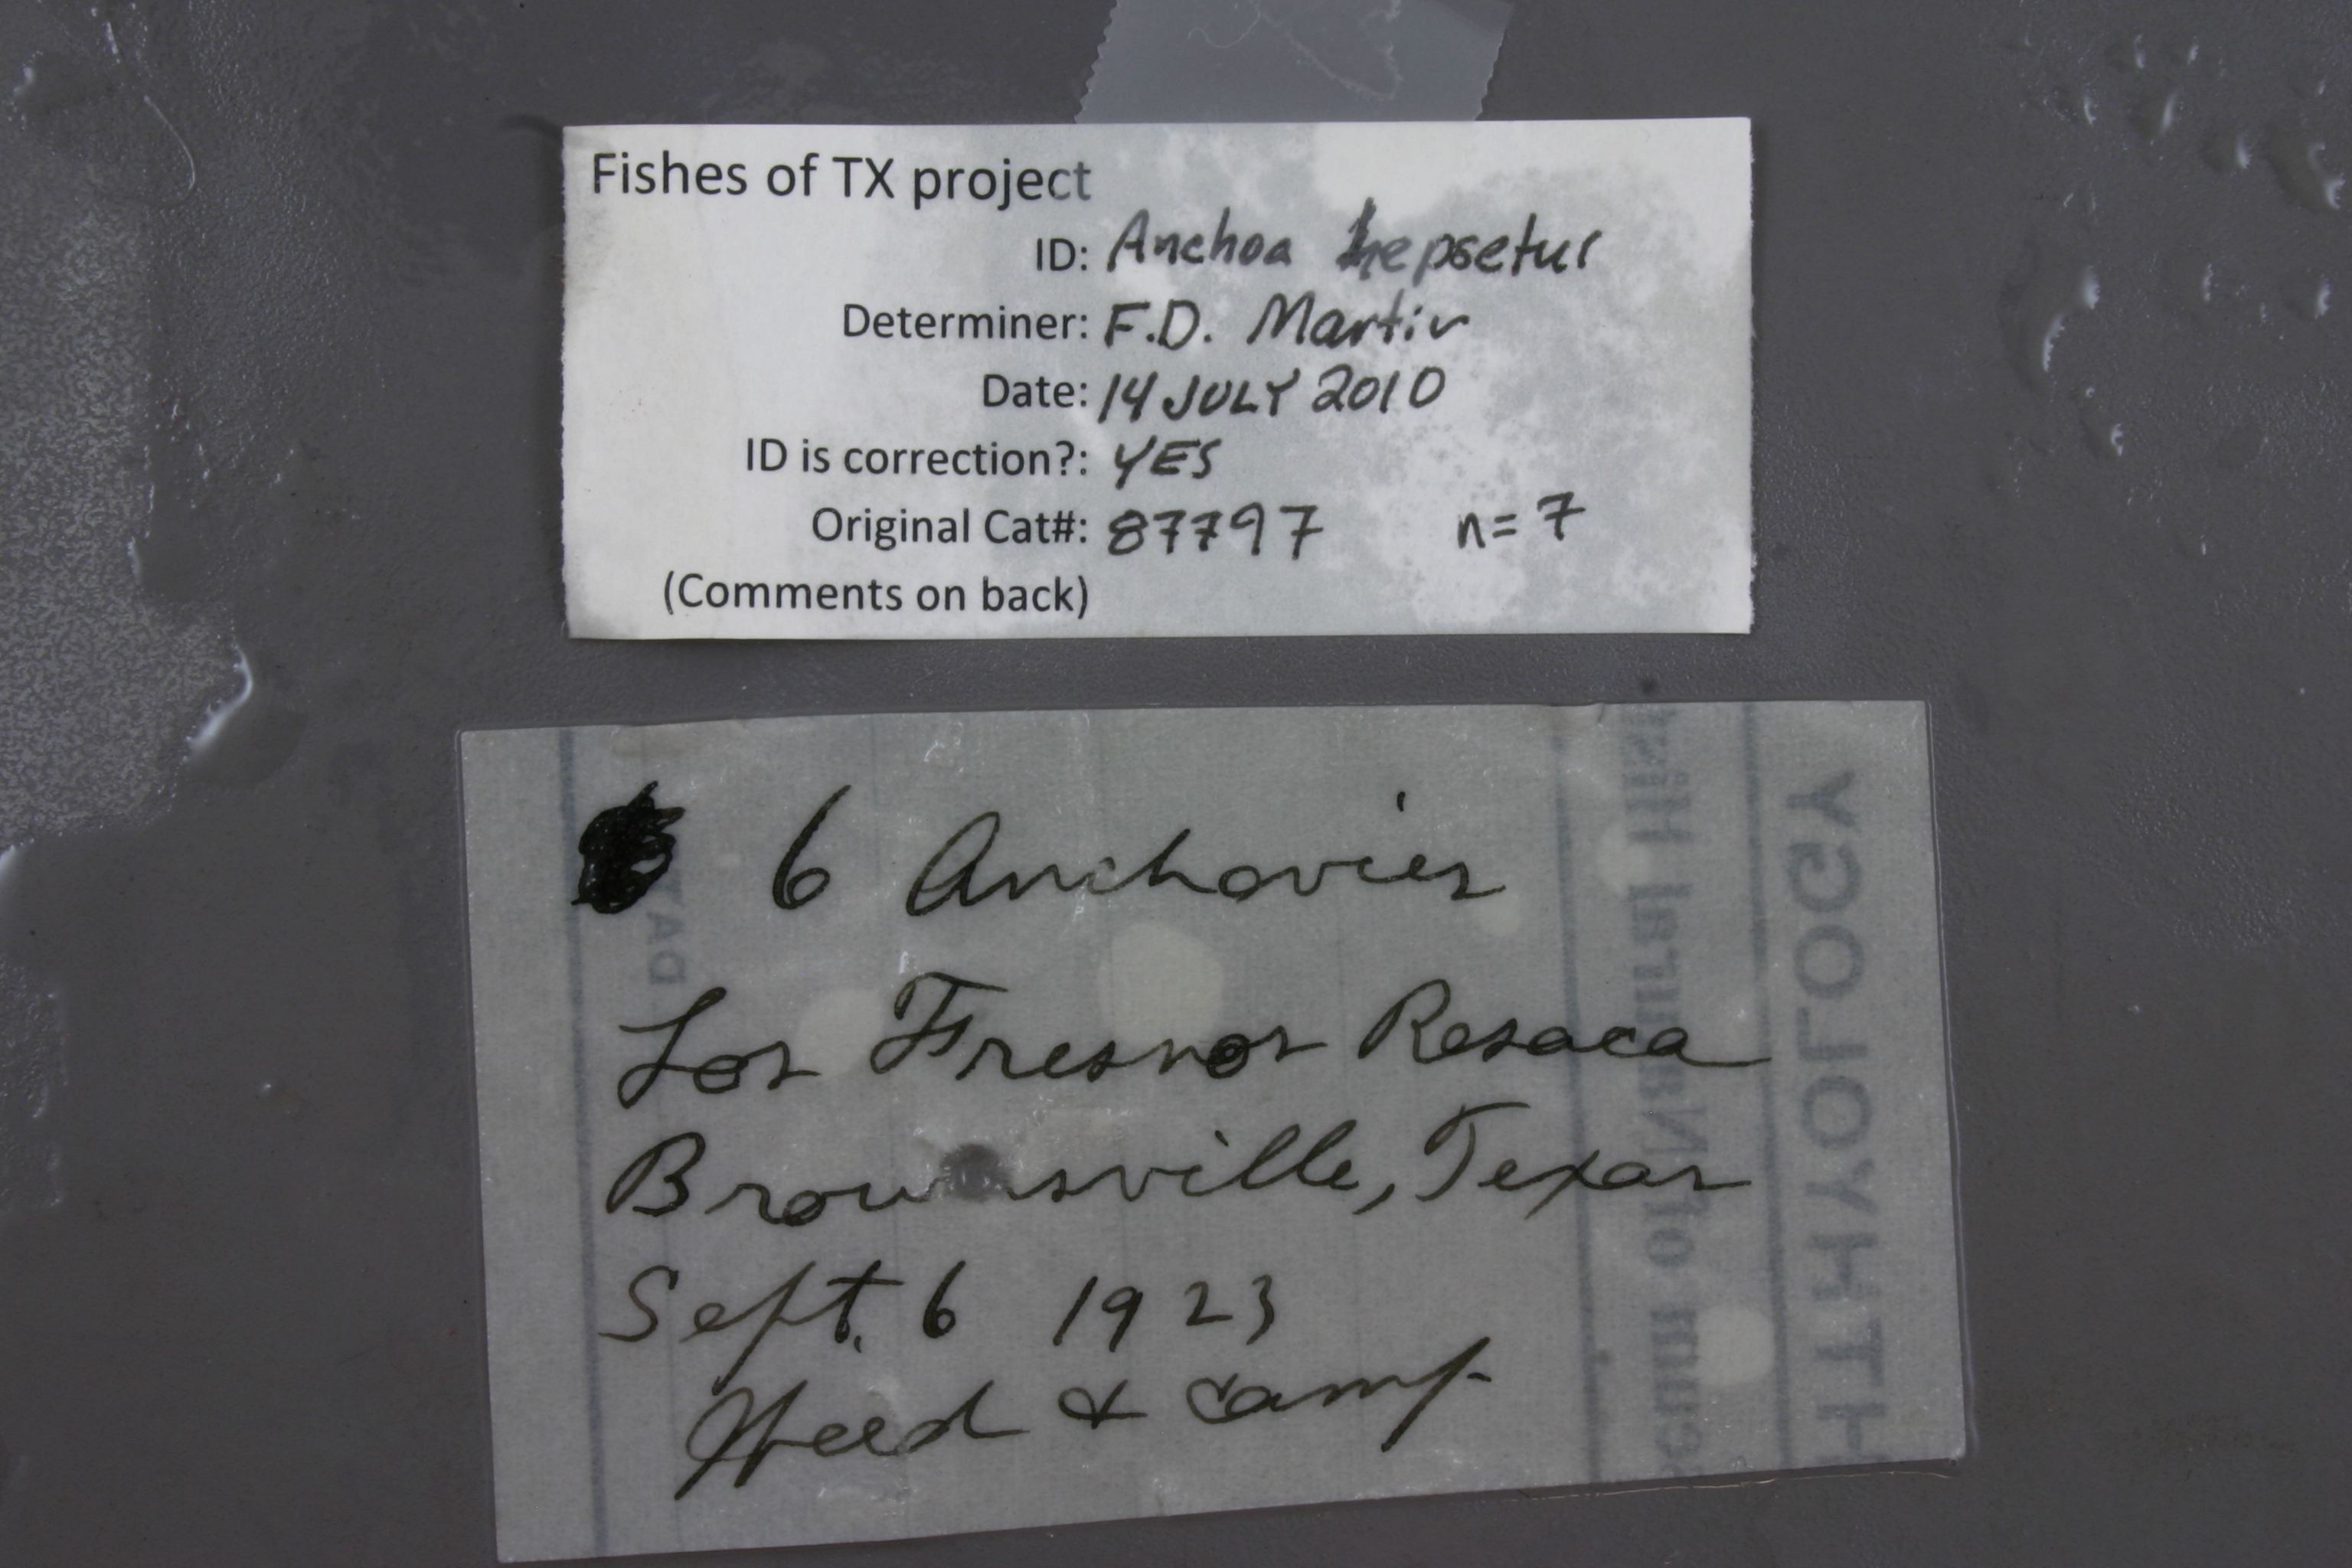 Fishes of TX project
ID: Anchoa hepsetus
Determiner: F.D. Martin
Date: 14 JULY 2010
ID is correction?: YES
Original Cat#: 87797 n=7
(Comments on back)
6 Anchovies
Los Fresnos Resaca
Brownsville, Texas
Sept. 6 1923
Weed & Camp
DAY
Natural Hist
HTHYOLOGY